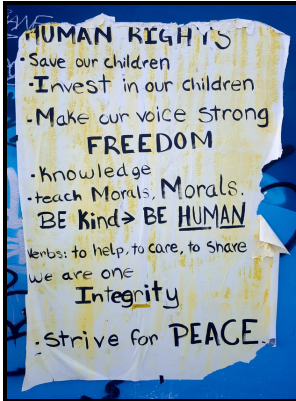 HUMAN RIGHTS
• Save our children
• Invest in our children
• Make our voice strong
FREEDOM
• Knowledge
• teach Morals, Morals.
BE Kind → BE HUMAN
Verbs: to help, to care, to share
we are one
Integrity
• Strive for PEACE.